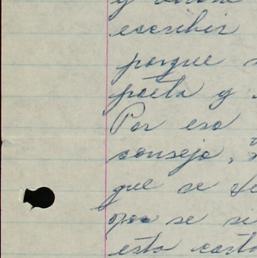 y
escribir
porque
poeta y
Por eso
consejo,
que se
se
esta carta